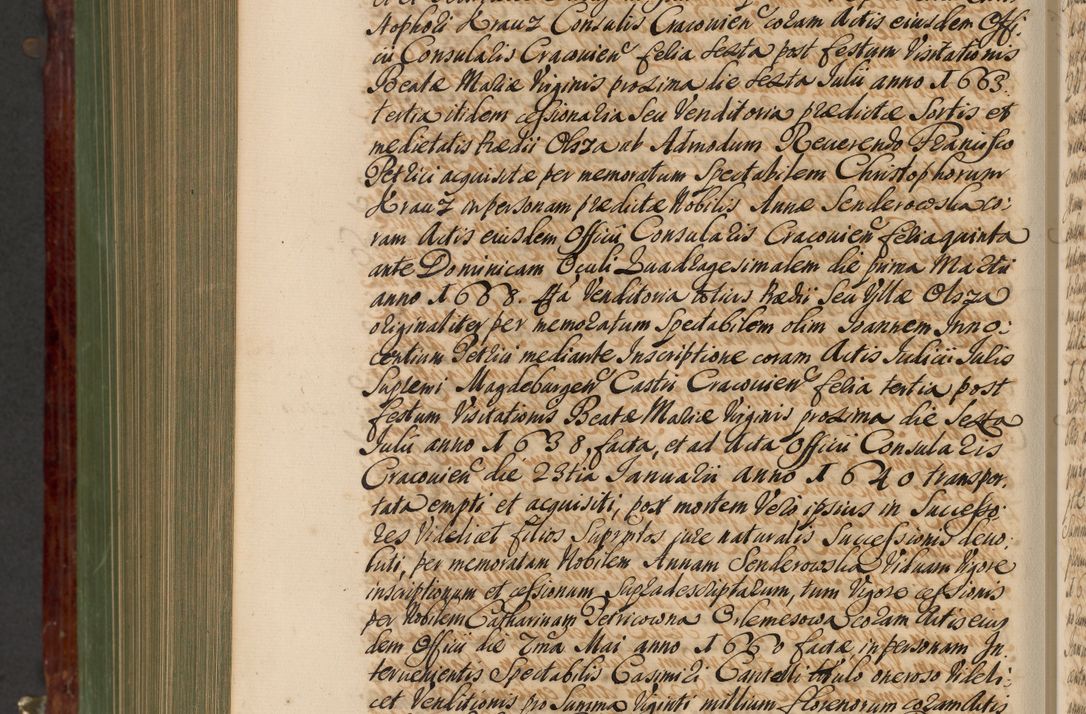 stophori Krauz Consulis Cracouien̄ coram Actis eiusdem Offi:
cii Consularis Cracouien̄ feria sexta post festum Visitationis
Beatæ Mariæ Virginis proxima die sexta Julii anno 1663.
tertia itidem cessionaria seu Venditoria prædictæ Sortis et
medietatis Prædii Olsza ab Admodum Reuerendo Francisco
Petrici acquisitæ per memoratum Spectabilem Christophorum
Krauz in personam prædictæ Nobilis Annæ Senderowska co:
ram Actis eiusdem Officii Consularis Cracouien̄ feria quinta
ante Dominicam Oculi Quadragesimalem die prima Martii
anno 1668. 4ta Venditoria totius Prædii seu Villæ Olsza
originaliter per memoratum Spectabilem olim Joannem Inno:
centium Petrici mediante Inscriptione coram Actis Judicii Juris
Supremi Magdeburgen̄ Castri Cracouien̄ feria tertia post
festum Visitationis Beatæ Mariæ Virginis proxima die sexta
Julii anno 1638, facta, et ad Acta Officii Consularis
Cracouien̄ die 23tia Januarii anno 1640 transpor,
tata empti et acquisiti, post mortem Vero ipsius in Successo:
res Videlicet filios Supraptos jure naturalis Successionis deuo:
luti, per memoratam Nobilem Annam Senderowska Viduam Vigore
inscriptionum et cessionum Supradescriptarum, tum Vigore cessionis
per Nobilem Catharinam Petricowna Orlemesowa coram Actis eius
dem Officii die 7ma Mai anno 1660 factæ in personam In,
teruenientis Spectabilis Casimiri Cantelli titulo oneroso Videli:
cet Venditionis pro Summa Viginti millium Florenorum coram Actis